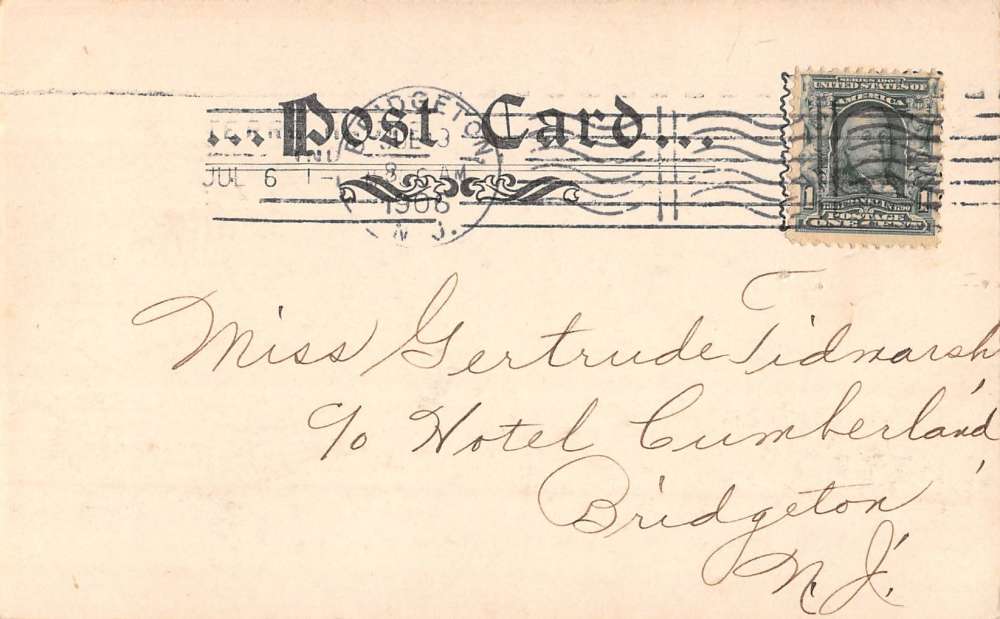 ...Post Card...
BRIDGETON,
JUL 6
8-6 AM
1906
N. J.
SERIES 1902
UNITED STATES OF
AMERICA
1 1
POSTAGE
ONE CENT
Miss Gertrude Tidmarsh,
c/o Hotel Cumberland,
Bridgeton
N.J.